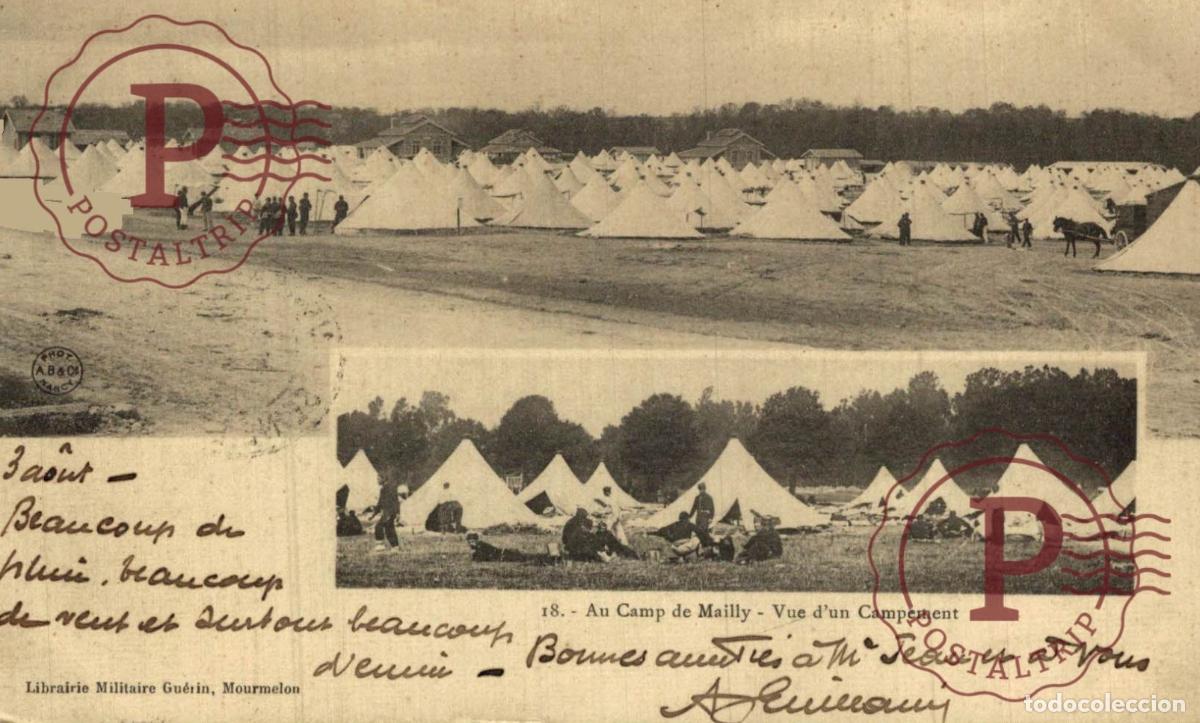 P
POSTALTRIP
PHOT.
A.B & Co
NANCY
3 août -
Beaucoup de
pluie, beaucoup
de vent et surtout beaucoup
d'ennui -
18. - Au Camp de Mailly - Vue d'un Campement
Bonnes amitiés à Mr Jean et à Vous
Librairie Militaire Guérin, Mourmelon
P
POSTALTRIP
todocoleccion